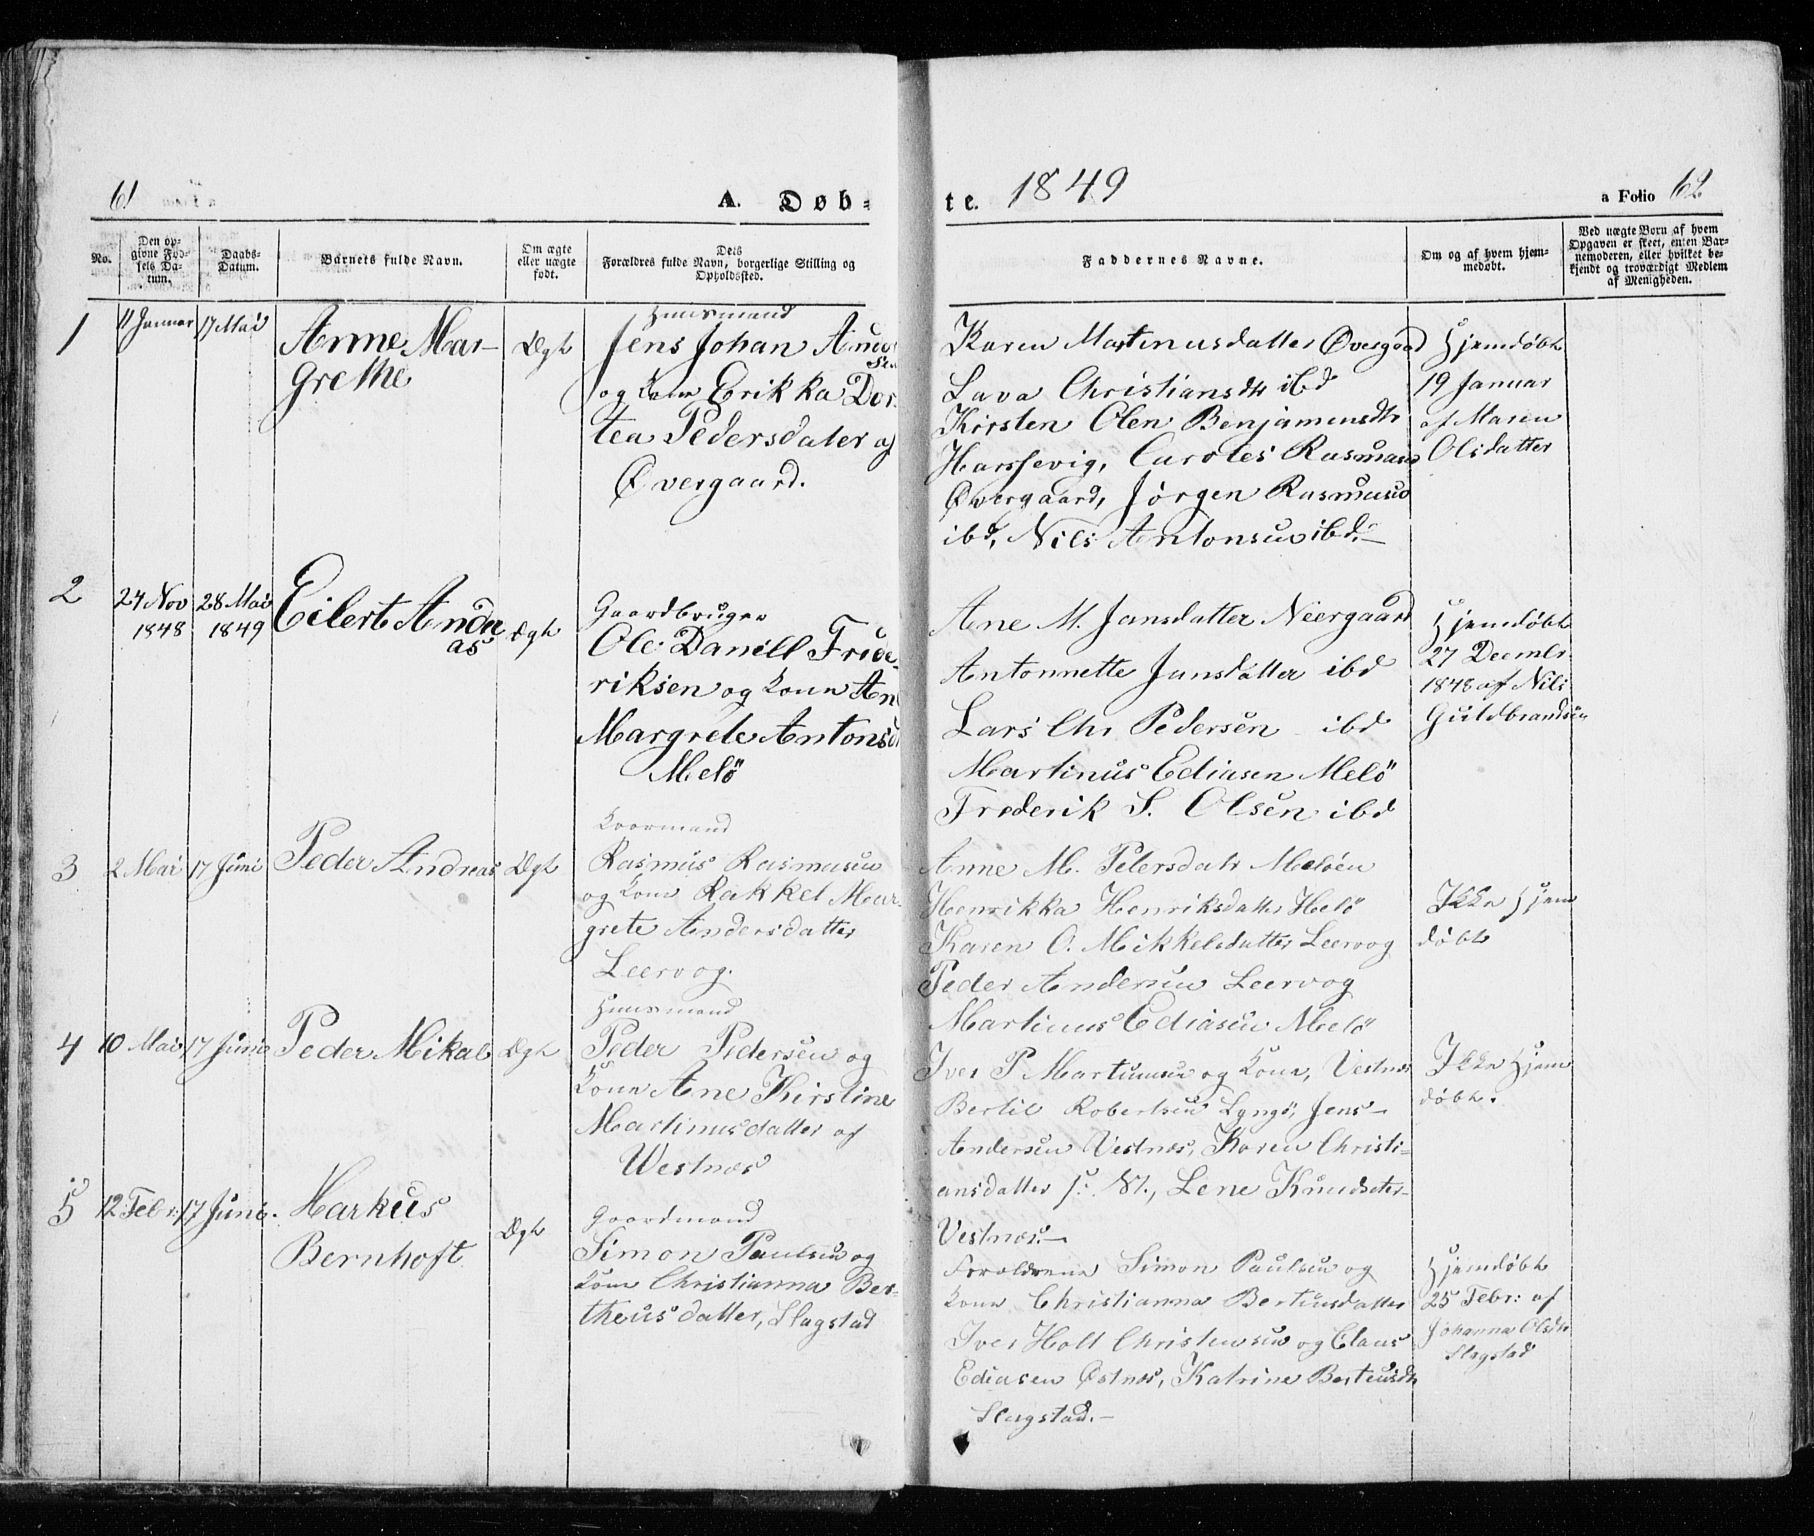 61
A. Døb-
te. 1849
a Folio 62
No.
Den op-
givne Fød-
sels Da-
tum.
Daabs-
Datum.
Barnets fulde Navn.
Om ægte
eller uægte
født.
Dets
Forældres fulde Navn, borgerlige Stilling og
Opholdssted.
Faddernes Navne.
Om og af hvem hjem-
medøbt.
Ved uægte Børn af hvem
Opgaven er skeet, enten Bar-
nemoderen, eller hvilket be-
kjendt og troværdigt Medlem
af Menigheden.
1
11 Januar
17 Mai
Anne Mar-
grethe
Ægte
Huusmand
Jens Johan
og Kone Erikka Dor-
tea Pedersdater af
Øvergaard.
Karen Martinusdatter Øvergaard
Lava Christiansdtr ibd
Kirsten Olen Benjaminsdtr
Caroles Rasmusen
Øvergaard, Jørgen Rasmusen
ibd, Nils Antonsen ibd.
Hjemdøbt
19 Januar
af Maren
Olsdatter
2
24 Nov
1848
28 Mai
1849
Eilert Andre
as
Ægte
Gaardbruger
Ole Daniell Fride-
riksen og Kone An
Margrete Antonsd
Melö
Ane M. Jansdatter Neergaard
Antonnette Jansdatter ibd
Lars Chr Pedersen ibd
Martinus Ediasen Melö
Frederik S. Olsen ibd
Hjemdøbt
27 Decembr
1848 af Nils
Guldbrandsen
3
2 Mai
17 Juni
Peder Andreas
Ægte
Rasmus Rasmusen
og Kone Rakkel Mar-
grete Andersdatter
Leervog.
Anne M. Petersdatr Melöen
Henrikka Henriksdatter Melö
Karen O. Mikkelsdatter Leervog
Peder Andersen Leervog
Martinus Ediasen Melö
Ikke Hjem
døbt
4
10 Mai
17 Juni
Peder Mikal
Ægte
Huusmand
Peder Pedersen og
Kone Ane Kirstine
Martinusdatter af
Westnæs
Iver P Martinusen og Kone, Vestnæs
Bertil Robertsen Lyngö, Jens
Andersen Vestnæs, Karen Christi-
ansdatter s. St., Lene Knudsdtr-
Vestnæs.
Ikke Hjem
døbt.
5
12 Febr:
17 Juni.
Markus
Bernhoft
Ægte
Gaardmand
Simon Paulsen og
Kone Christianna Ber-
theusdatter, Slagstad
Forældrene Simon Paulsen og
Kone Christianna Berteusdatter
Iver Holt Christensen og Claus
Ediasen Østnæs, Katrine Berteusdtr
Slagstad.
Hjemdøbt
25 Febr: af
Johanna Olsdtr
Slagstad